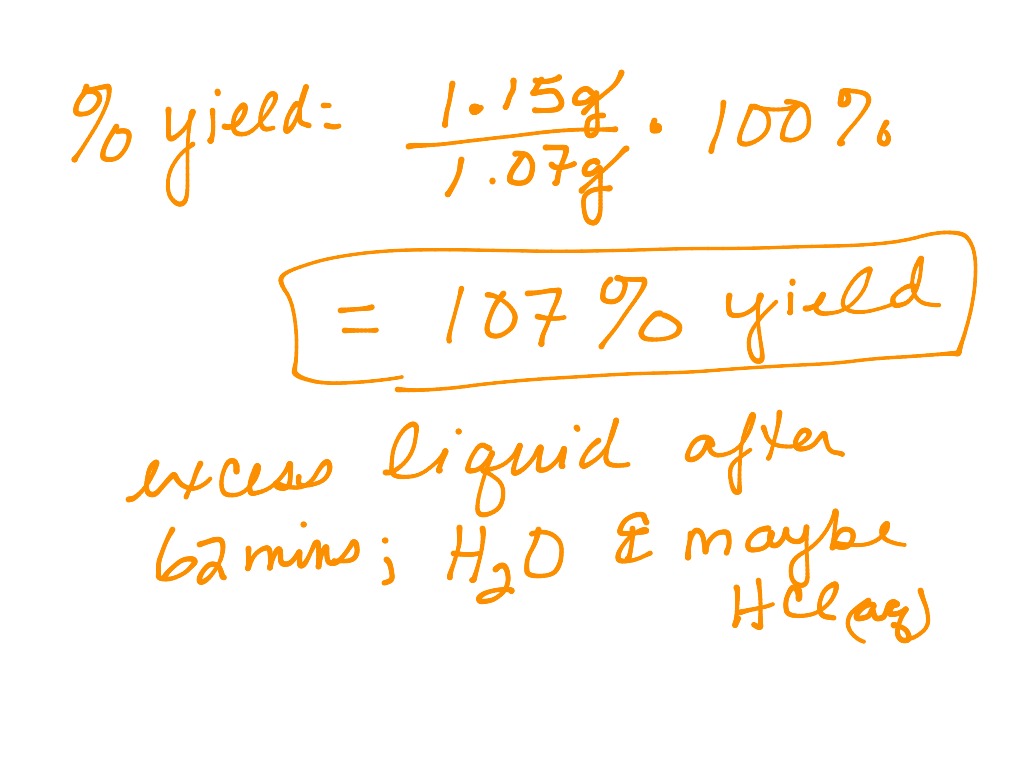 % yield = 1.15g / 1.07g · 100%
= 107% yield
excess liquid after
62 mins; H₂O & maybe
HCl(aq)